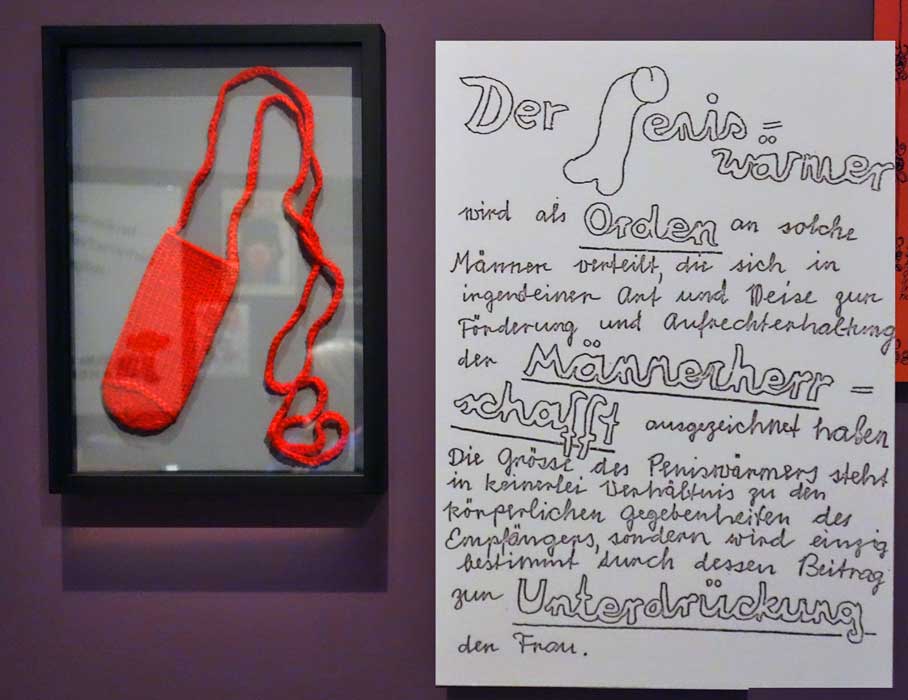 Der Penis=
wärmer
wird als Orden an solche
Männer verteilt, die sich in
irgendeiner Art und Weise zur
Förderung und Aufrechterhaltung
der Männerherr=
schafft ausgezeichnet haben
Die Grösse des Peniswärmers steht
in keinerlei Verhältnis zu den
körperlichen Gegebenheiten des
Empfängers, sondern wird einzig
bestimmt durch dessen Beitrag
zur Unterdrückung
der Frau.